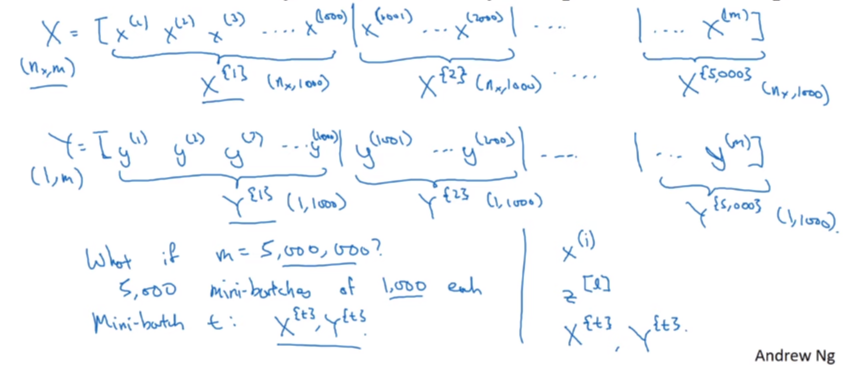 X = [x^(1) x^(2) x^(3) .... x^(1000) | x^(1001) ... x^(2000) | .... | .... x^(m)]
(n_x, m) X^{1} (n_x, 1000) X^{2} (n_x, 1000) .... X^{5,000} (n_x, 1000)
Y = [y^(1) y^(2) y^(3) ... y^(1000) | y^(1001) ... y^(2000) | .... | ... y^(m)]
(1, m) Y^{1} (1, 1000) Y^{2} (1, 1000) Y^{5,000} (1, 1000)
What if m = 5,000,000?
5,000 mini-batches of 1,000 each
Mini-batch t: X^{t}, Y^{t}.
x^(i)
z^[l]
X^{t}, Y^{t}.
Andrew Ng